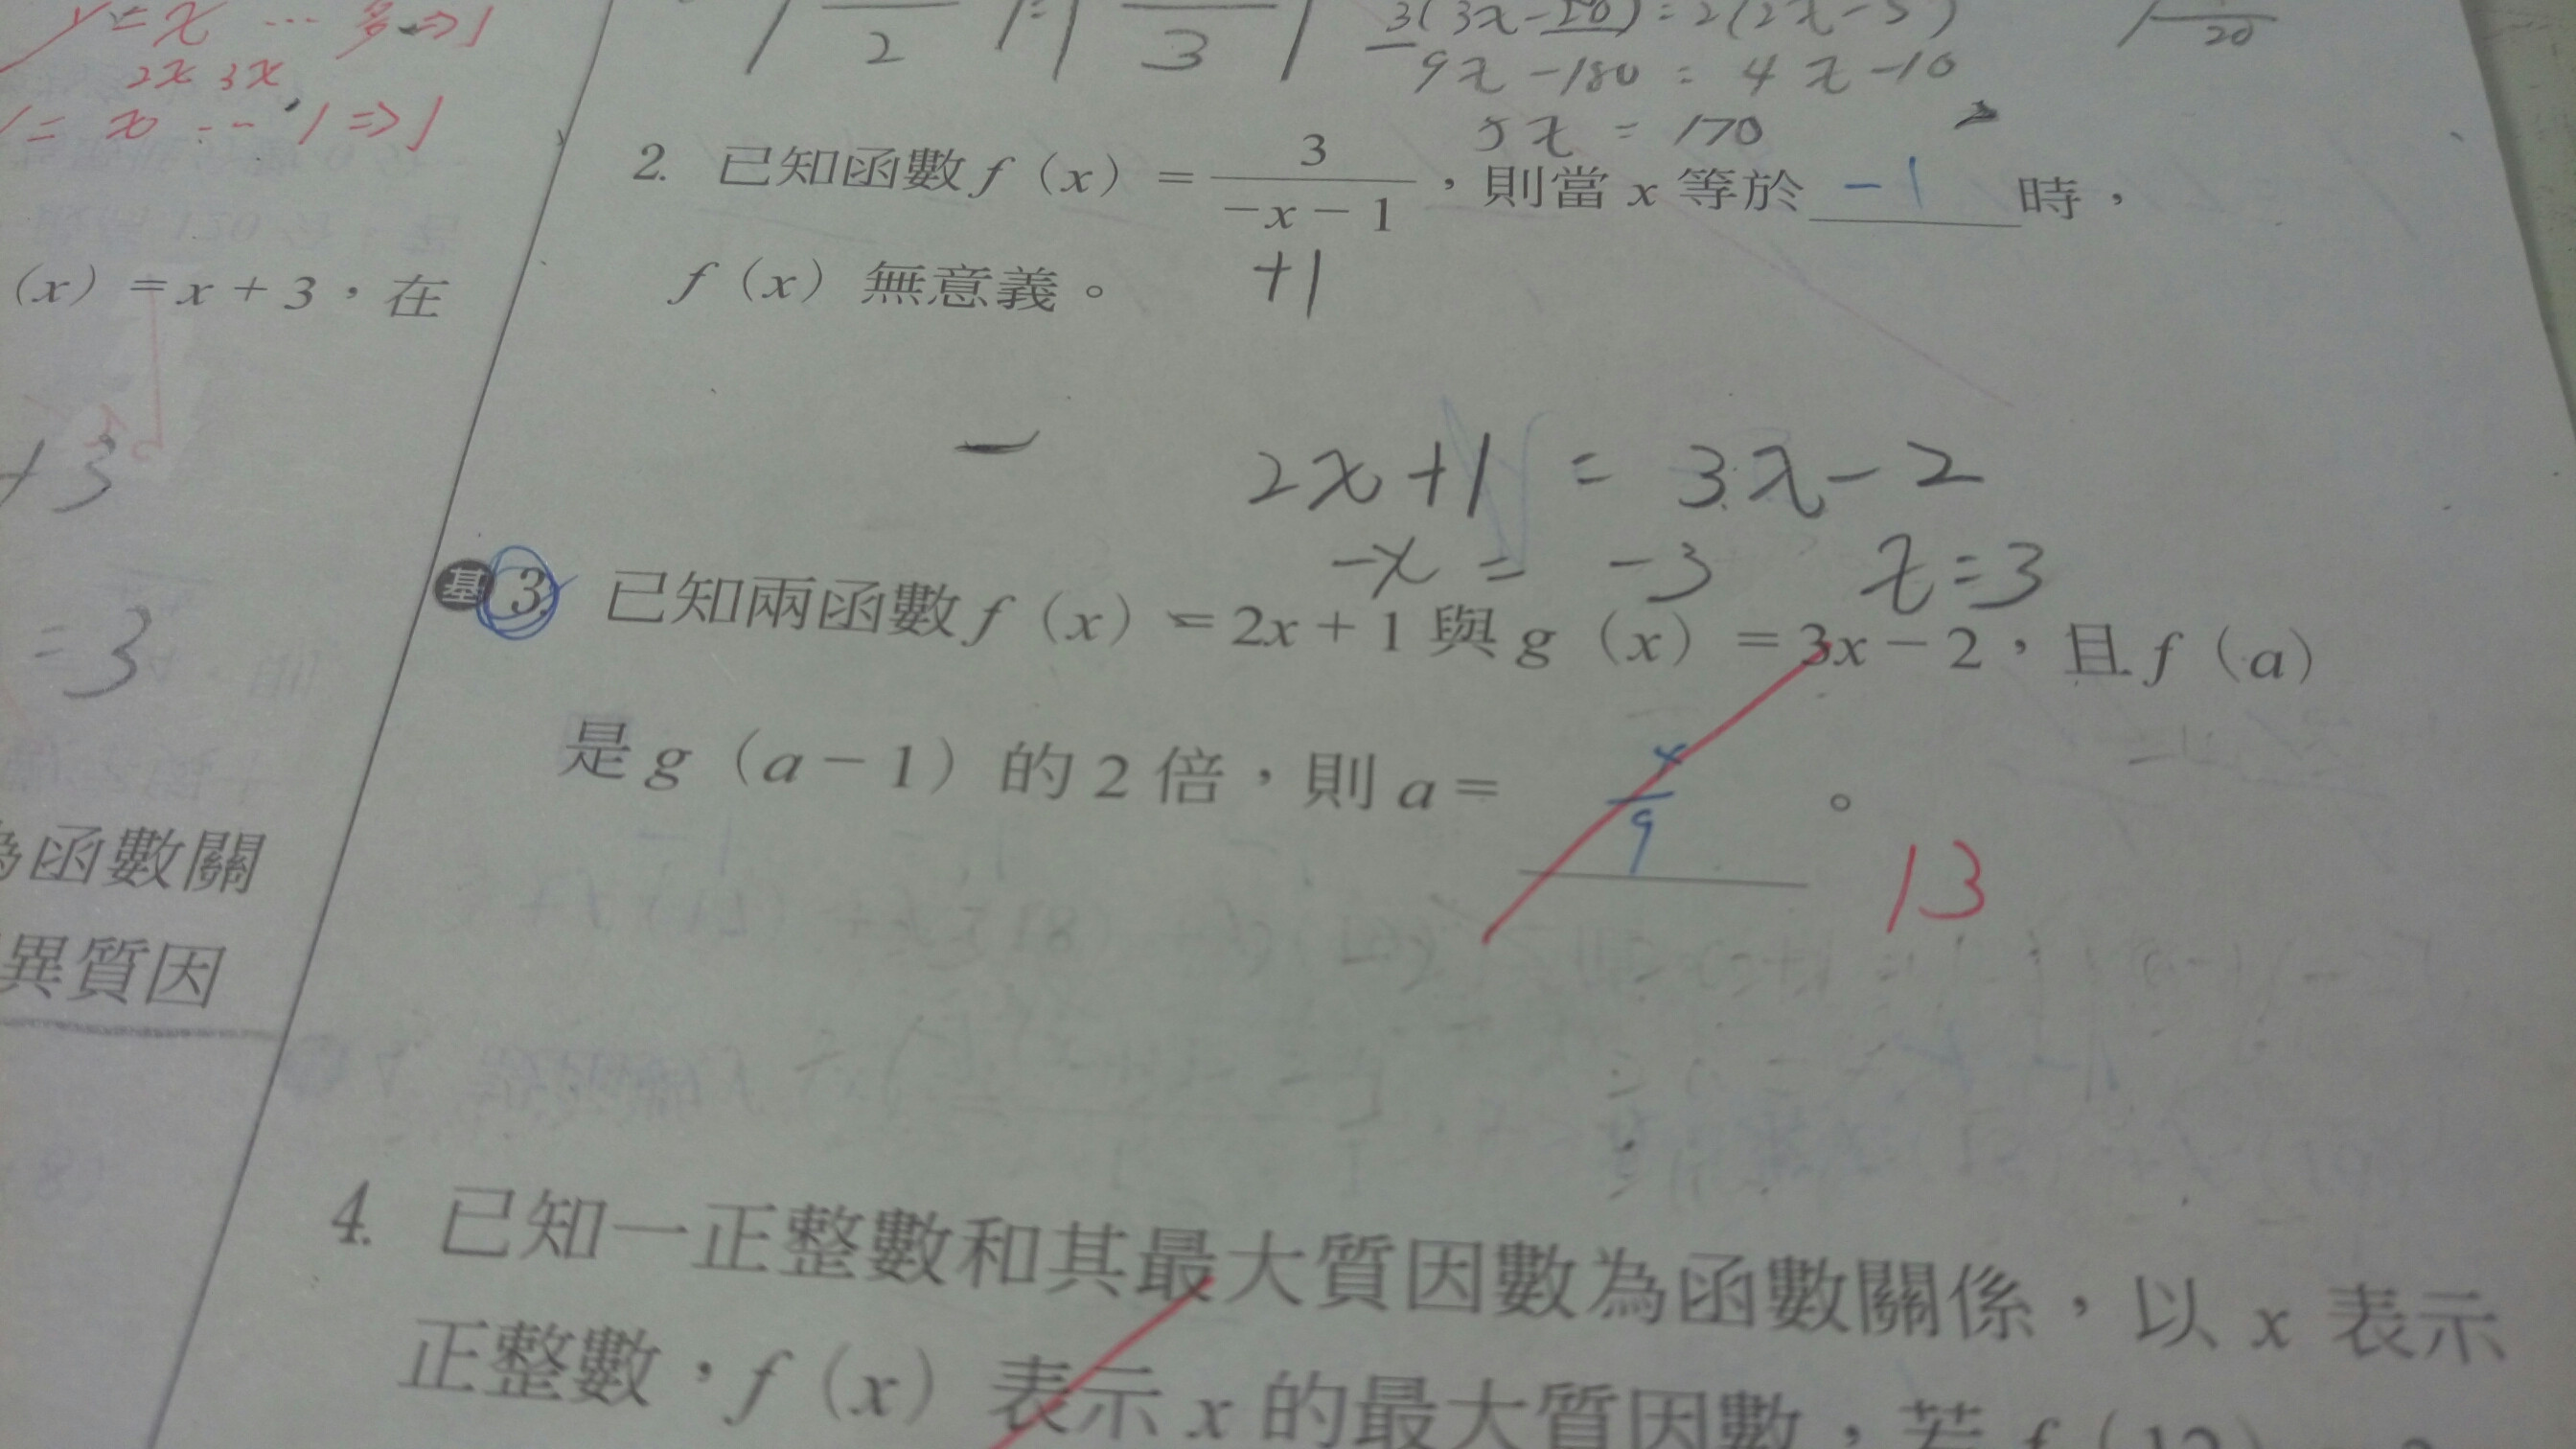 y = x … 多 ⇒ 1
2x 3x
= x … 1 ⇒ 1
(x) = x + 3，在
+3
= 3
為函數關
異質因
2
3
3(3x-20) = 2(2x-5)
9x - 180 = 4x - 10
5x = 170
20
2. 已知函數 f (x) = 3/(-x-1)，則當 x 等於 -1 時，
f (x) 無意義。 +1
2x+1 = 3x-2
-x = -3 x=3
基 3. 已知兩函數 f (x) = 2x + 1 與 g (x) = 3x - 2，且 f (a)
是 g (a - 1) 的 2 倍，則 a = 。
9
13
4. 已知一正整數和其最大質因數為函數關係，以 x 表示
正整數，f (x) 表示 x 的最大質因數，若 f (12)